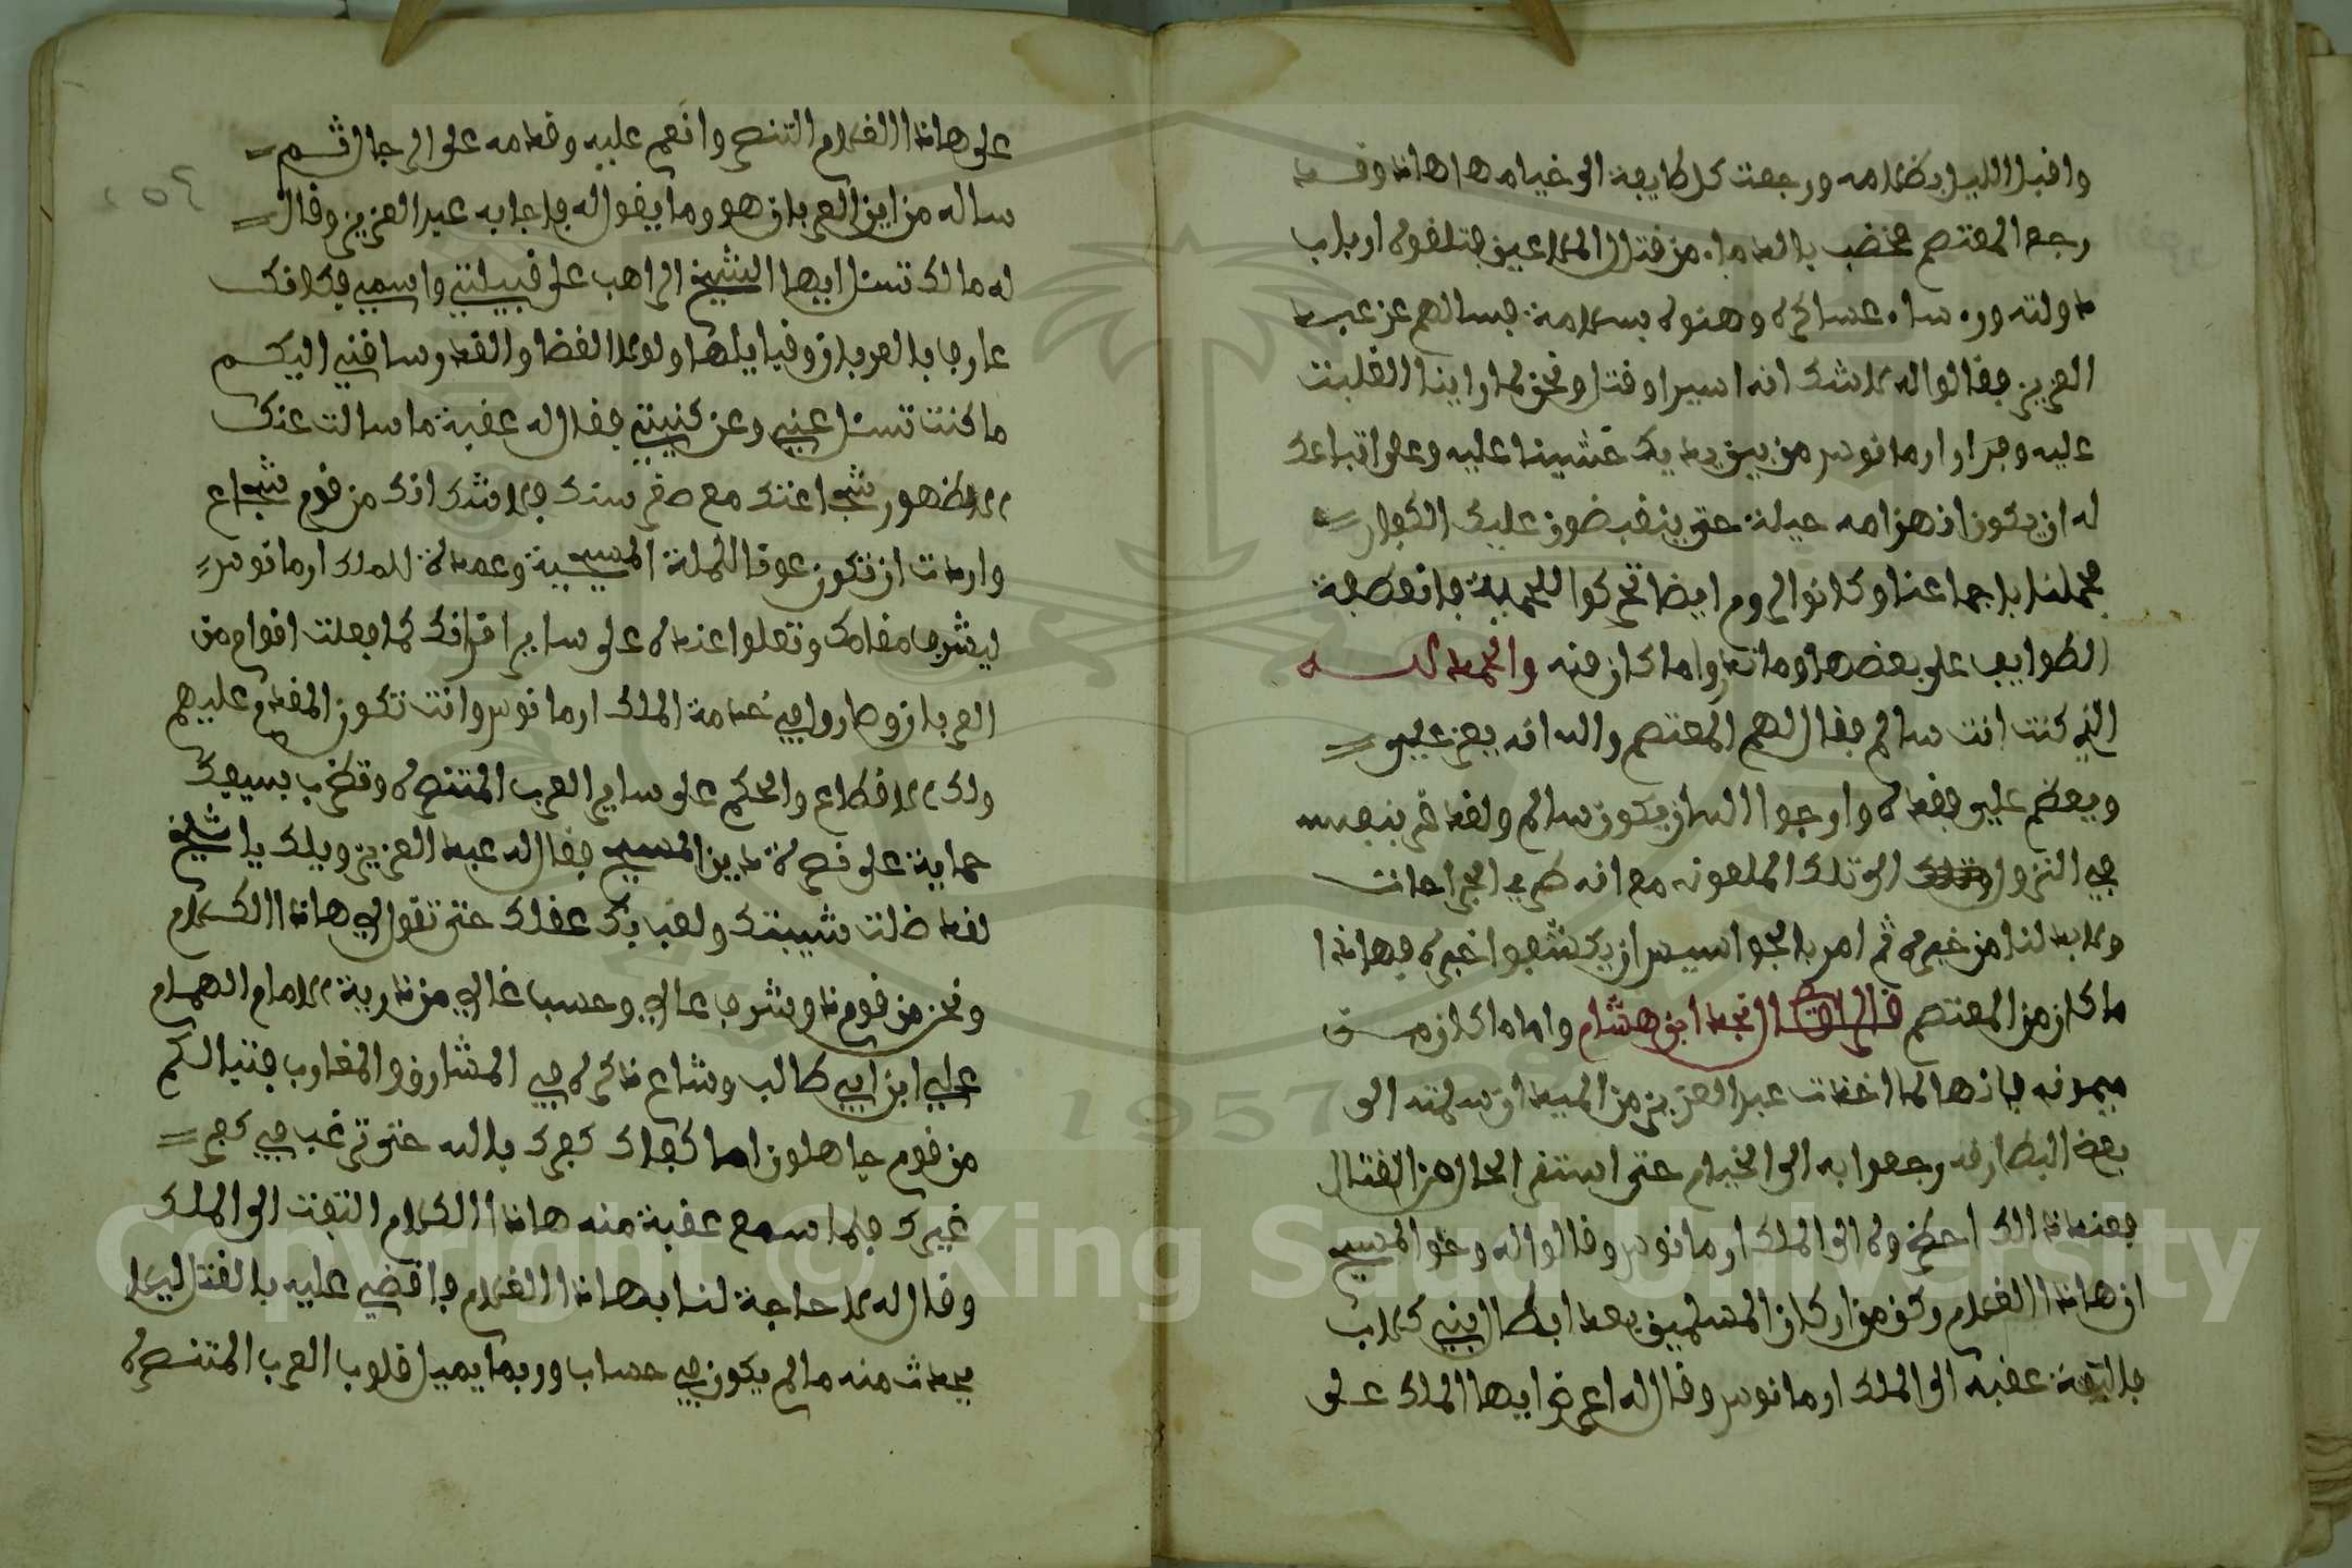 واقبل الليل بظلامه ورجعت كل طايفة الى خيامها هاذا وقد
رجع المعتصم مخضب بالدماء من قتال الملاعين فتلقوه ارباب
دولته وروساء عساكره وهنوه بسلامة فسالهم عن عبد
العزيز فقالوا له لا شك انه اسيرا وقتل ونحن لما راينا الغلبت
عليه وفرار ارمانوس من بين يديك خشينا عليه وعلى اتباعك
له ان يكون انهزامه حيلة حتى ينقبضون عليك الكفار
فحملنا باجماعنا وكانوا الروم ايضا تحركوا للحملة فانعطفة
الطوايف على بعضها وماندروا ما كان منه والحمد لله
الذي كنت انت سالم فقال لهم المعتصم والله انه يعز علي
ويعظم علي فقده وارجوا الله ان يكون سالم ولقد غر بنفسه
في النزول الى تلك الملعونه مع انه طري الجراحات
ولا بد لنا من خبره ثم امر بالجواسيس ان يكشفوا خبره فهاذا
ما كان من المعتصم قال الراوي نجد ابن هشام واما ما كان من
ميمونه فانها لما اخذت عبد العزيز من الميدان سلمته الى
بعض البطارقه رجعوا به الى الخيام حتى استقر الحال من القتال
فعند ذالك احضروه الى الملك ارمانوس وقالوا له وحق المسيح
ان هاذا الغلام ركن من اركان المسلمين بعد ابطال بني كلاب
فالتفت عقبه الى الملك ارمانوس وقال له اعرض ايها الملك على
على هاذا الغلام التنصر وانعم عليه وقدمه على الرجال ثم
ساله من اين العربان هو وما يقوله فاجابه عبد العزيز وقال
له مالك تسئل ايها الشيخ الراهب على قبيلتي واسمي فكانك
عارف بالعربان وقبايلها ولولا القضا والقدر وساقني اليكم
ما كنت تسئل عني وعن كنيتي فقال له عقبة ما سالت عنك
الا لظهور شجاعتك مع صغر سنك فلا شك انك من قوم شجاع
واردت ان تكون عونا للملة المسيحية وعمدة للملك ارمانوس
ليشرف مقامك وتعلوا عنده على ساير اقرانك كما فعلت اقوام من
العربان وصاروا في خدمة الملك ارمانوس وانت تكون المقدم عليهم
ولك الاقطاع والحكم على ساير العرب المتنصره وتضرب بسيفك
حماية على نصرة دين المسيح فقال له عبد العزيز ويلك يا شيخ
لقد ضلت شيبتك ولقب بك عقلك حتى تقول لي هاذا الكلام
ونحن من قوم ذو شرف عالي وحسب غالي من ذرية الامام الهمام
علي ابن ابي طالب وشاع ذكره في المشارق والمغارب فتبا لكم
من قوم جاهلون اما كفاك كفرك بالله حتى ترغب في كفر
غيرك فلما سمع عقبة منه هاذا الكلام التفت الى الملك
وقال له لا حاجة لنا بهاذا الغلام فاقضي عليه بالقتل ليلا
يحدث منه ما لم يكون في حساب وربما يميل قلوب العرب المتنصره
Copyright © King Saud University
1957